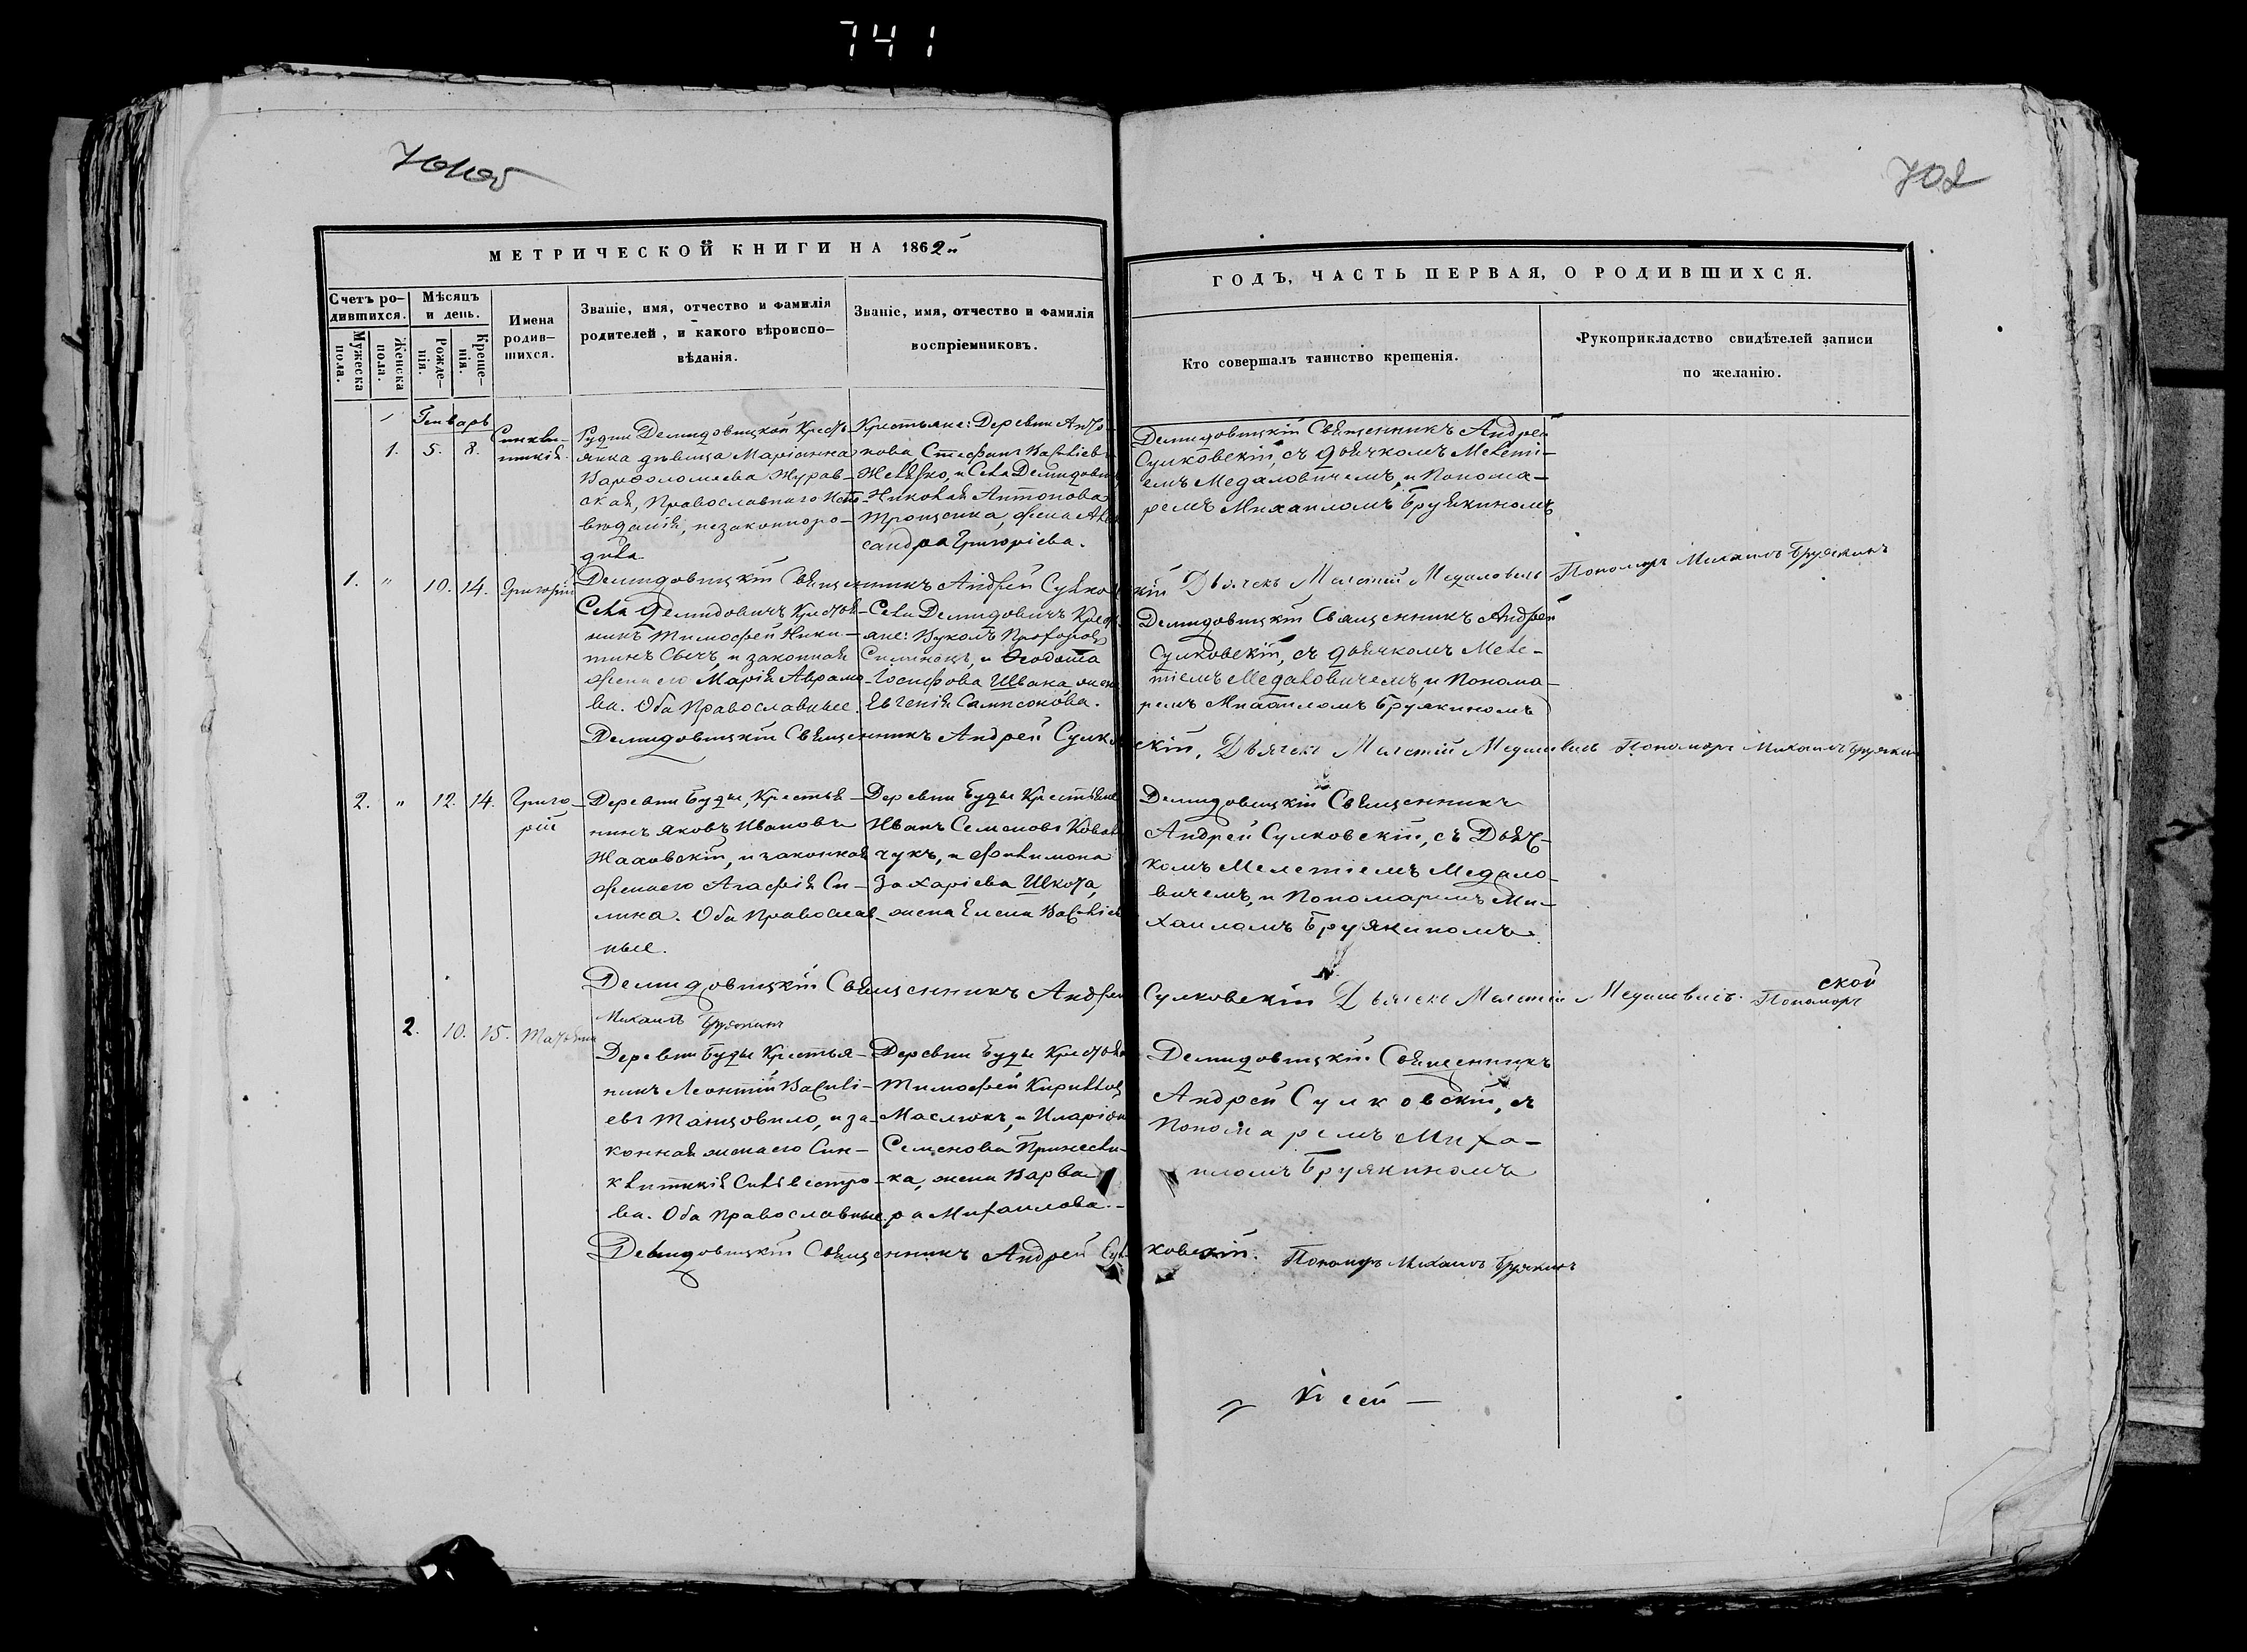 741
702
МЕТРИЧЕСКОЙ КНИГИ НА 1862й
Счетъ ро-
дившихся.
Мужеска
пола.
Женска
пола.
Мѣсяцъ
и день.
Рожде-
нія.
Креще-
нія.
Имена
родив-
шихся.
Званіе, имя, отчество и фамилія
родителей, и какого вѣроиспо-
вѣданія.
Званіе, имя, отчество и фамилія
воспріемниковъ.
ГОДЪ, ЧАСТЬ ПЕРВАЯ, О РОДИВШИХСЯ.
Кто совершалъ таинство крещенія.
Рукоприкладство свидѣтелей записи
по желанію.
Генварь
1. 5. 8.
Синкли-
тикія.
Рудни Демидовицкой Кресть-
янка дѣвица Маріанна
Варфоломеева Журав-
ская, Православнаго Испо-
вѣданія, незаконноро-
дила
Крестьяне: Деревни Анто-
нова Стефанъ Васильевъ
и Села Демидовичъ
Николая Антонова
Троценка, жена Алек
сандра Григоріева.
Демидовицкій Священникъ Андрей
Сулковскій, съ дьячкомъ Мелеті-
емъ Медаловичемъ, и Понома-
ремъ Михаиломъ Бруякиномъ
Демидовицкій Священникъ Андрей Сулковскій Дьячекъ Мелетій Медаловичъ Пономарь Михаилъ Бруякинъ
1. " 10. 14. Григорій
Села Демидовичъ Крестья-
нинъ Тимофей Ники-
тинъ Сычъ, и законная
жена его Марія Аврамо-
ва. Оба Православные.
Села Демидовичъ Кресть
яне: Вуколъ Прохоровъ
и Ѳеодота
Іосифова Швака жена
Евгенія Сампсонова.
Демидовицкій Священникъ Андрей
Сулковскій, съ дьячкомъ Меле-
тіемъ Медаловичемъ, и Понома-
ремъ Михаиломъ Бруякиномъ
Демидовицкій Священникъ Андрей Сулковскій, Дьячекъ Мелетій Медаловичъ Пономарь Михаилъ Бруякинъ
2. " 12. 14. Григо-
рій
Деревни Буды, Крестья-
нинъ Яковъ Ивановъ
и законная
жена его Агафія Си-
лина. Оба Православ-
ные.
Деревни Буды Крестьяне
Иванъ Семеновъ Коваль
чукъ, и Филимона
Захаріева Шкота,
жена Елена Василіев
Демидовицкій Священникъ
Андрей Сулковскій, съ Дьяч-
комъ Мелетіемъ Медало-
вичемъ, и Пономаремъ Ми-
хаиломъ Бруякиномъ.
Демидовицкій Священникъ Андрей Сулковскій Дьячекъ Мелетій Медаловичъ. Пономарь
Михаилъ Бруякинъ
2. 10. 15. Татьяна
Деревни Буды Крестья-
нинъ Леонтій Василі-
евъ Танцовило, и за-
конная жена его Син-
клитикія Сильвестро-
ва. Оба Православные.
Деревни Буды Крестьян
Тимофей Кириллов
Маслюкъ, и Иларіон
Семенова
ка, жена Варва
ра Михаилова.
Демидовицкій Священникъ
Андрей Сулковскій, съ
Пономаремъ Миха-
иломъ Бруякиномъ
Демидовицкій Священникъ Андрей Сулковскій. Пономарь Михаилъ Бруякинъ